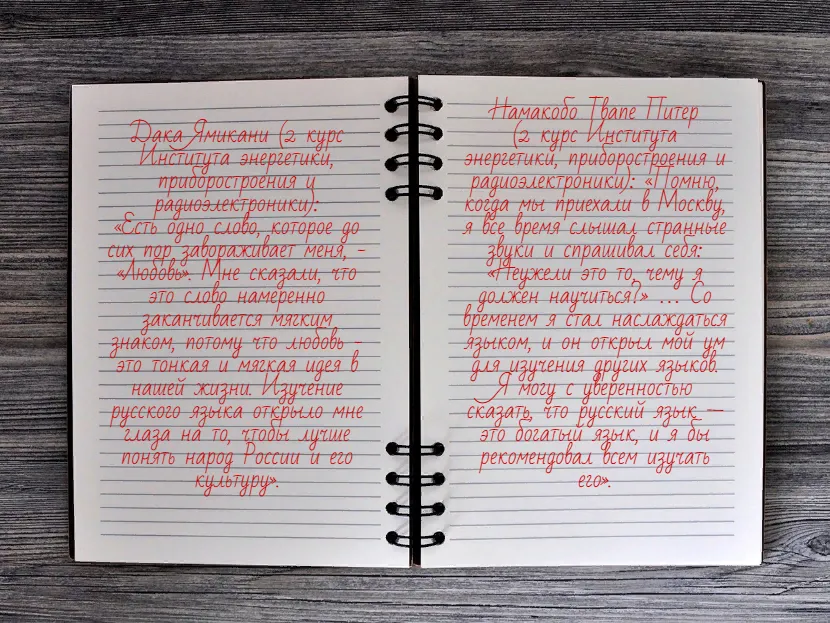 Дака Ямикани (2 курс
Института энергетики,
приборостроения и
радиоэлектроники):
«Есть одно слово, которое до
сих пор завораживает меня, –
«Любовь». Мне сказали, что
это слово намеренно
заканчивается мягким
знаком, потому что любовь –
это тонкая и мягкая идея в
нашей жизни. Изучение
русского языка открыло мне
глаза на то, чтобы лучше
понять народ России и его
культуру».
Намакобо Твапе Питер
(2 курс Института
энергетики, приборостроения и
радиоэлектроники): «Помню,
когда мы приехали в Москву,
я все время слышал странные
звуки и спрашивал себя:
«Неужели это то, чему я
должен научиться?» ... Со
временем я стал наслаждаться
языком, и он открыл мой ум
для изучения других языков.
Я могу с уверенностью
сказать, что русский язык —
это богатый язык, и я бы
рекомендовал всем изучать
его».